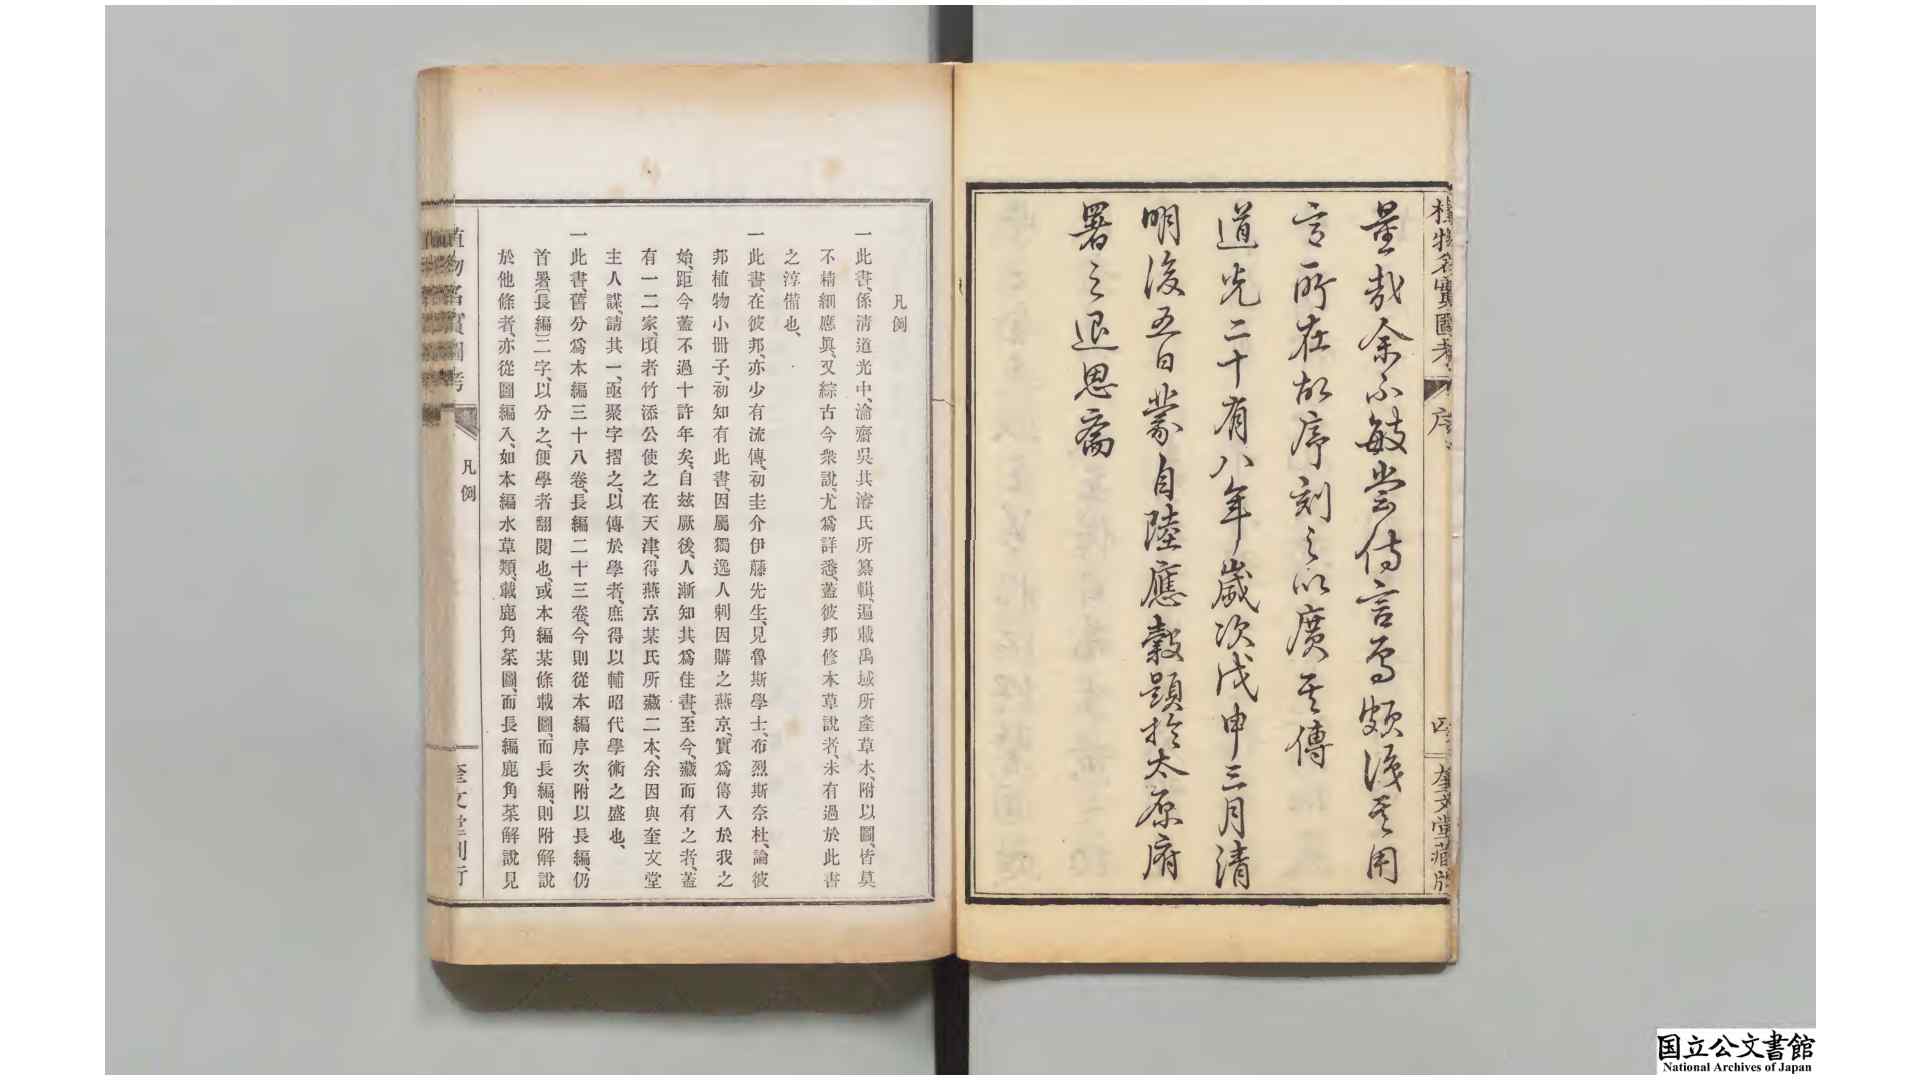 量哉余不敏嘗侍言焉頗識其用
言所在故序刻之以廣其傳
道光二十有八年歲次戊申三月清
明後五日蒙自陸應穀題於太原府
署之退思齋
植物名實圖考
序
四
奎文堂藏版
凡例
一此書、係清道光中、瀹齋吳其濬氏所纂輯、遍載禹域所產草木、附以圖、皆莫
不精細應眞、又綜古今衆說、尤爲詳悉、蓋彼邦修本草說者、未有過於此書
之淳備也、
一此書、在彼邦、亦少有流傳、初圭介伊藤先生、見魯斯學士、布烈斯奈杜、論彼
邦植物小冊子、初知有此書、因屬獨逸人剌因購之燕京、實爲傳入於我之
始、距今蓋不過十許年矣、自玆厥後、人漸知其爲佳書、至今、藏而有之者、蓋
有一二家、頃者竹添公使之在天津、得燕京某氏所藏二本、余因與奎文堂
主人謀、請其一、亟聚字摺之、以傳於學者、庶得以輔昭代學術之盛也、
一此書、舊分爲本編三十八卷、長編二十三卷、今則從本編序次、附以長編、仍
首署[長編]二字、以分之、便學者翻閱也、或本編某條載圖、而長編、則附解說
於他條者、亦從圖編入、如本編水草類、載鹿角菜圖、而長編鹿角菜解說見
植物名實圖考
凡例
奎文堂刊行
国立公文書館
National Archives of Japan